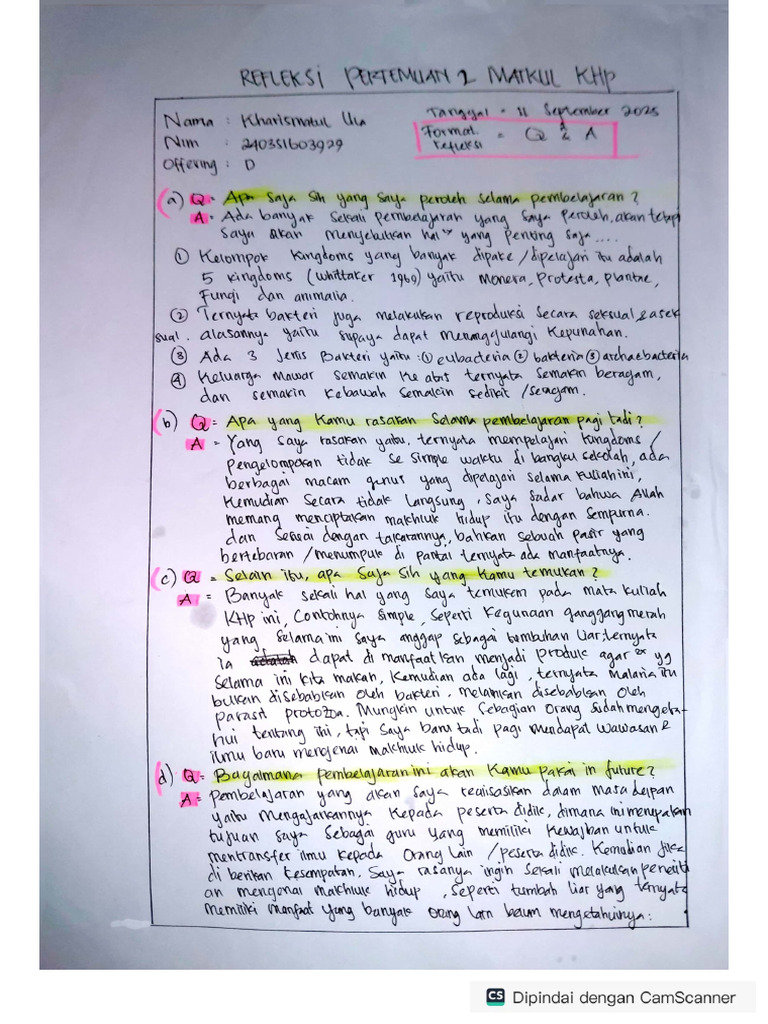 REFLEKSI PERTEMUAN 2 MATKUL KHP
Nama : Kharismatul Ula
Tanggal = 11 September 2025
Nim : 240351603929
Format Refleksi = Q & A
Offering : D
(a) Q = Apa saja sih yang saya peroleh selama pembelajaran ?
A = Ada banyak sekali pembelajaran yang saya peroleh, akan tetapi
saya akan menyebutkan hal" yang penting saja....
① Kelompok kingdoms yang banyak dipake / dipelajari itu adalah
5 kingdoms (Whittaker 1969) yaitu Monera, Protesta, plantae,
Fungi dan animalia.
② Ternyata bakteri juga melakukan reproduksi secara seksual & asek
sual. alasannya yaitu supaya dapat menanggulangi kepunahan.
③ Ada 3 Jenis Bakteri yaitu : ① eubacteria ② bakteria ③ archaebacteria
④ Keluarga mawar semakin ke atas ternyata semakin beragam,
dan semakin kebawah semakin sedikit / seragam.
(b) Q = Apa yang kamu rasakan selama pembelajaran pagi tadi ?
A = Yang saya rasakan yaitu, ternyata mempelajari kingdoms /
pengelompokan tidak se simple waktu di bangku sekolah, ada
berbagai macam genus yang dipelajari selama kuliah ini,
kemudian secara tidak langsung, saya sadar bahwa Allah
memang menciptakan makhluk hidup itu dengan sempurna.
dan sesuai dengan takarannya, bahkan sebuah pasir yang
bertebaran / menumpuk di pantai ternyata ada manfaatnya.
(c) Q = Selain itu, apa saja sih yang kamu temukan ?
A = Banyak sekali hal yang saya temukan pada mata kuliah
KHP ini, Contohnya simple, seperti kegunaan ganggang merah
yang selama ini saya anggap sebagai tumbuhan liar, ternyata
ia dapat di manfaatkan menjadi produk agar² yg
selama ini kita makan, kemudian ada lagi, ternyata Malaria itu
bukan disebabkan oleh bakteri, melainkan disebabkan oleh
parasit protozoa. Mungkin untuk sebagian orang sudah mengeta-
hui tentang ini, tapi saya baru tadi pagi mendapat wawasan &
ilmu baru mengenai makhluk hidup.
(d) Q = Bagaimana pembelajaran ini akan kamu pakai in future ?
A = pembelajaran yang akan saya realisasikan dalam masa depan
yaitu mengajarkannya kepada peserta didik, dimana ini merupakan
tujuan saya sebagai guru yang memiliki kewajiban untuk
mentransfer ilmu kepada orang lain / peserta didik. Kemudian jika
di berikan kesempatan. Saya rasanya ingin sekali melakukan peneliti
an mengenai makhluk hidup, seperti tumbuh liar yang ternyata
memiliki manfaat yang banyak orang lain belum mengetahuinya.
CS Dipindai dengan CamScanner